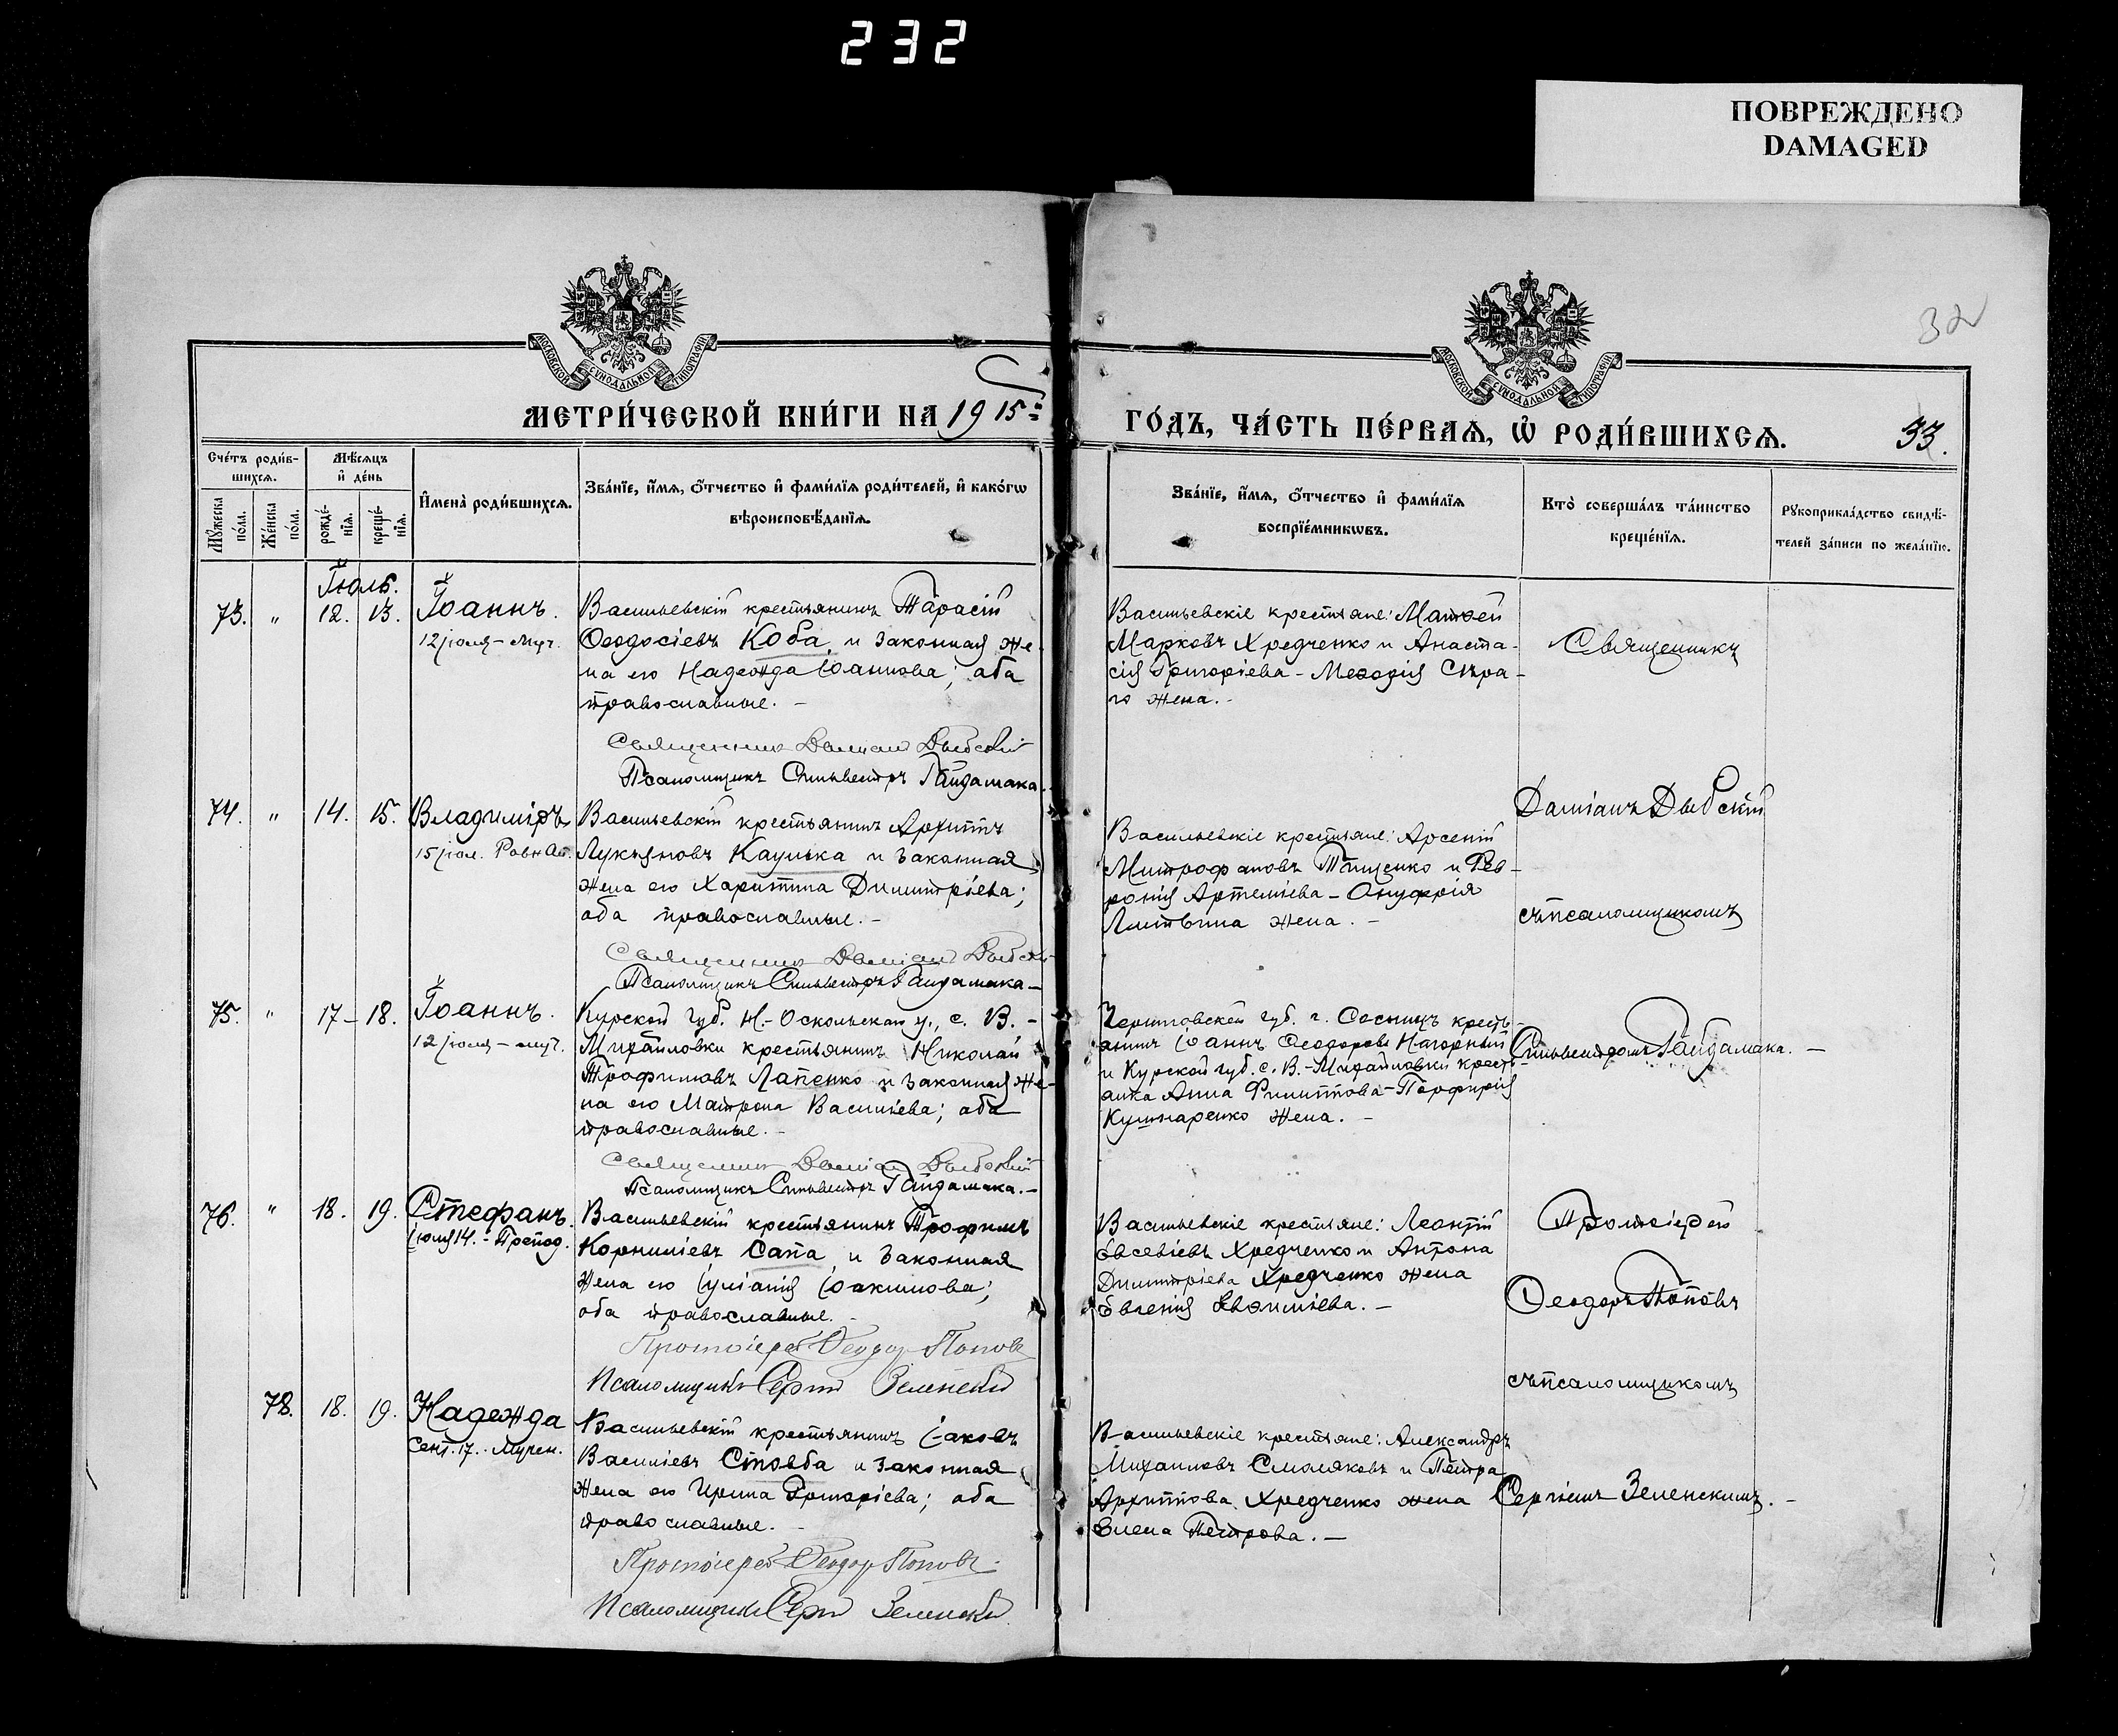 232
ПОВРЕЖДЕНО
DAMAGED
32
МОСКОВСКОЙ СУНОДАЛЬНОЙ ТИПОГРАФІИ
МОСКОВСКОЙ СУНОДАЛЬНОЙ ТИПОГРАФІИ
МЕТРИ́ЧЕСКОЙ КНИ́ГИ НА 1915
ГО́ДЪ, ЧА́СТЬ ПЕ́РВАѦ, Ѽ РОДИ́ВШИХСѦ.
33.
Сче́тъ роди́в-
шихсѧ.
Мѣ́сяцъ
и҆ де́нь
Мꙋ́жеска
по́ла.
Же́нска
по́ла.
рожде́-
нїѧ.
креще́-
нїѧ.
И҆мена̀ роди́вшихсѧ.
Зва́нїе, и҆́мѧ, ѻ҆́тчество и҆ фами́лїѧ роди́телей, и҆ како́гѡ
вѣроисповѣ́данїѧ.
Зва́нїе, и҆́мѧ, ѻ҆́тчество и҆ фами́лїѧ
воспрїе́мникѡвъ.
Кто̀ соверша́лъ та́инство
креще́нїѧ.
Рꙋкоприкла́дство свидѣ́-
телей за́писи по жела́нїю.
Іюль.
73. " 12. 13. Іоаннъ.
12 іюля - муч.
Васильевскій крестьянинъ Тарасій
Ѳеодосіевъ Коба, и законная же-
на его Надежда Іоаннова; оба
православные. -
Священникъ Даміанъ Дыбскій
Псаломщикъ Сильвестръ Гайдамака.
Васильевскіе крестьяне: Матѳей
Марковъ Хредченко и Анаста-
сія Григоріева - Меѳодія Сѣра-
го жена. -
Священникъ
74. " 14. 15. Владиміръ
15 іюл. Равн ап.
Васильевскій крестьянинъ Архиппъ
Лукьяновъ Каулька и законная
жена его Харитина Димитріева;
оба православные. -
Священникъ Даміанъ Дыбскій
Псаломщикъ Сильвестръ Гайдамака -
Васильевскіе крестьяне: Арсеній
Митрофановъ Тищенко и Фев-
ронія Артеміева - Онуфрія
Литвина жена. -
Даміанъ Дыбскій
съ псаломщикомъ
75. " 17 - 18. Іоаннъ.
12 іюля - муч.
Курской губ. Н.-Оскольскаго у., с. В. -
Михайловки крестьянинъ Николай
Трофимовъ Лапенко и законная же-
на его Матрона Василіева; оба
православные. -
Священникъ Даміанъ Дыбскій
Псаломщикъ Сильвестръ Гайдамака. -
Черниговской губ. г. Сосницъ кресть-
янинъ Іоаннъ Ѳеодоровъ Нагорный
и Курской губ. с. В.-Михайловки кресть-
янка Анна Филиппова - Порфирія
Кушнаренко жена. -
Сильвестромъ Гайдамака. -
76. " 18. 19. Стефанъ.
Іюля 14. - Препод.
Васильевскій крестьянинъ Трофимъ
Корниліевъ Сапа, и законная
жена его Іуліанія Іоакимова;
оба православные. -
Протоіерей Ѳеодоръ Поповъ
Псаломщикъ Сергій Зеленскій
Васильевскіе крестьяне: Леонтій
Евсевіевъ Хредченко и Антона
Димитріева Хредченко жена
Евгенія
Протоіерей
Ѳеодоръ Поповъ
съ псаломщикомъ
78. 18. 19. Надежда
Сент. 17. - Мучен.
Васильевскій крестьянинъ Іаковъ
Василіевъ Стовба и законная
жена его Ирина Григоріева; оба
православные. -
Протоіерей Ѳеодоръ Поповъ.
Псаломщикъ Сергій Зеленскій
Васильевскіе крестьяне: Александръ
Михаиловъ Смоляковъ и Петра
Архиппова Хредченко жена
Елена Петрова. -
Сергіемъ Зеленскимъ. -